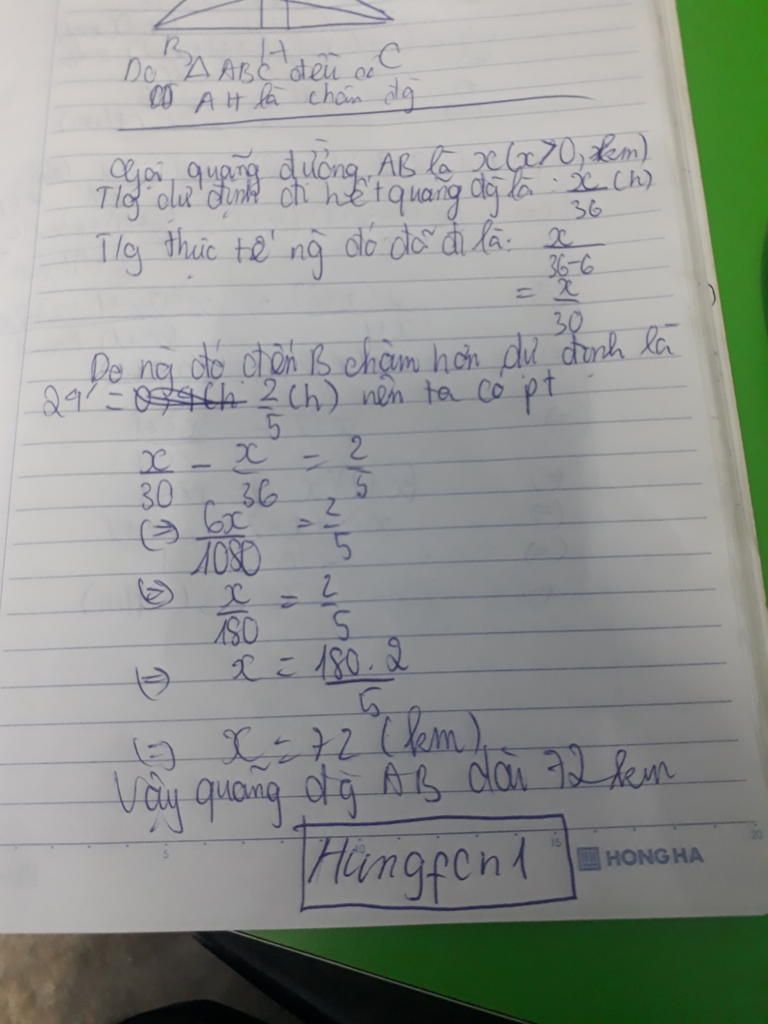 B H C
Do △ABC đều
AH là chân đg
Gọi quãng đường AB là x (x>0, km)
T/g dự định đi hết quãng đg là: x/36 (h)
T/g thực tế ng đó đã đi là: x/36-6
= x/30
Do ng đó đến B chậm hơn dự định là
24' = 2/5 (h) nên ta có pt
x/30 - x/36 = 2/5
(=) 6x/1080 = 2/5
(=) x/180 = 2/5
(=) x = 180.2/5
(=) x = 72 (km)
Vậy quãng đg AB dài 72 km
Hungfcn1
5 10 15 20
HONG HA